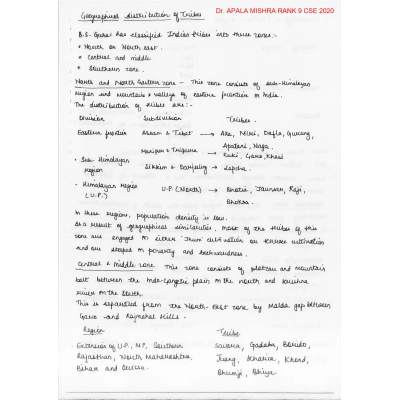 Dr. APALA MISHRA RANK 9 CSE 2020
Geographical distribution of Tribes
B.S. Guha has classified Indian tribes into three zones:-
• North or North east.
• Central and middle
• Southern zone.
North and North Eastern zone - This zone consists of sub-Himalayan
region and mountains & valleys of eastern frontier in India.
The distribution of tribes are:-
Division Subdivision Tribes.
Eastern frontier Assam & Tibet → Aka, Miri, Dafla, Gurung,
Apatani, Naga.
Manipur & Tripura → Kuki, Garo, Khasi
• Sub-Himalayan region Sikkim & Darjeeling → Lepcha.
• Himalayan region (U.P.) U.P. (North) → Bhotia, Jaunsari, Raji,
Bhoksa.
In these regions, population density is low.
As a result of geographical similarities, most of the tribes of this
zone are engaged in either Jhum cultivation or terrace cultivation
and are steeped in poverty and backwardness.
Central & middle zone This zone consists of plateau and mountain
belt between the Indo-Gangetic plain in the north and Krishna
river in the South.
This is separated from the North-East zone by Malda gap between
Garo and Rajmahal Hills.
Region Tribe
Extension of U.P., M.P, Southern Savara, Gadaba, Borido,
Rajasthan, North Maharashtra, Juang, Kharia, Khond,
Bihar and Orissa. Bhumij, Bhiya